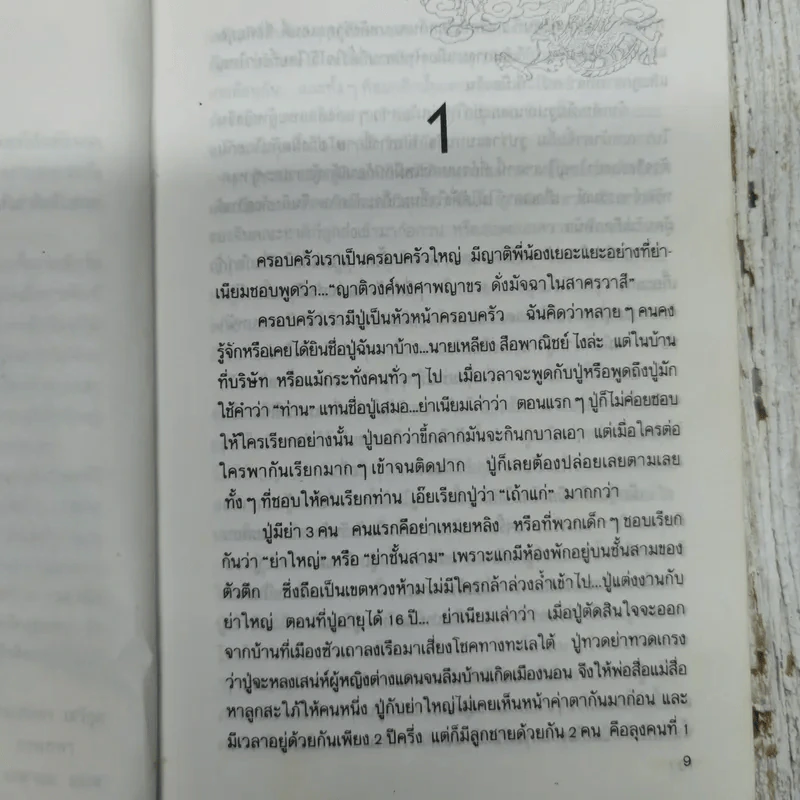 1
ครอบครัวเราเป็นครอบครัวใหญ่ มีญาติพี่น้องเยอะแยะอย่างที่ย่า-
เนียมชอบพูดว่า...“ญาติวงศ์พงศาพญาขร ดั่งมัจฉาในสาครวาสี”
ครอบครัวเรามีปู่เป็นหัวหน้าครอบครัว ฉันคิดว่าหลาย ๆ คนคง
รู้จักหรือเคยได้ยินชื่อปู่ฉันมาบ้าง...นายเหลียง สือพาณิชย์ ไงล่ะ แต่ในบ้าน
ที่บริษัท หรือแม้กระทั่งคนทั่ว ๆ ไป เมื่อเวลาจะพูดกับปู่หรือพูดถึงปู่มัก
ใช้คำว่า “ท่าน” แทนชื่อปู่เสมอ...ย่าเนียมเล่าว่า ตอนแรก ๆ ปู่ก็ไม่ค่อยชอบ
ให้ใครเรียกอย่างนั้น ปู่บอกว่าขี้กลากมันจะกินกบาลเอา แต่เมื่อใครต่อ
ใครพากันเรียกมาก ๆ เข้าจนติดปาก ปู่ก็เลยต้องปล่อยเลยตามเลย
ทั้ง ๆ ที่ชอบให้คนเรียกท่าน เอ๊ยเรียกปู่ว่า “เถ้าแก่” มากกว่า
ปู่มีย่า 3 คน คนแรกคือย่าเหมยหลิง หรือที่พวกเด็ก ๆ ชอบเรียก
กันว่า “ย่าใหญ่” หรือ “ย่าชั้นสาม” เพราะแกมีห้องพักอยู่บนชั้นสามของ
ตัวตึก ซึ่งถือเป็นเขตหวงห้ามไม่มีใครกล้าล่วงล้ำเข้าไป...ปู่แต่งงานกับ
ย่าใหญ่ ตอนที่ปู่อายุได้ 16 ปี... ย่าเนียมเล่าว่า เมื่อปู่ตัดสินใจจะออก
จากบ้านที่เมืองซัวเถาลงเรือมาเสี่ยงโชคทางทะเลใต้ ปู่ทวดย่าทวดเกรง
ว่าปู่จะหลงเสน่ห์ผู้หญิงต่างแดนจนลืมบ้านเกิดเมืองนอน จึงให้พ่อสื่อแม่สื่อ
หาลูกสะใภ้ให้คนหนึ่ง ปู่กับย่าใหญ่ไม่เคยเห็นหน้าค่าตากันมาก่อน และ
มีเวลาอยู่ด้วยกันเพียง 2 ปีครึ่ง แต่ก็มีลูกชายด้วยกัน 2 คน คือลุงคนที่ 1
9